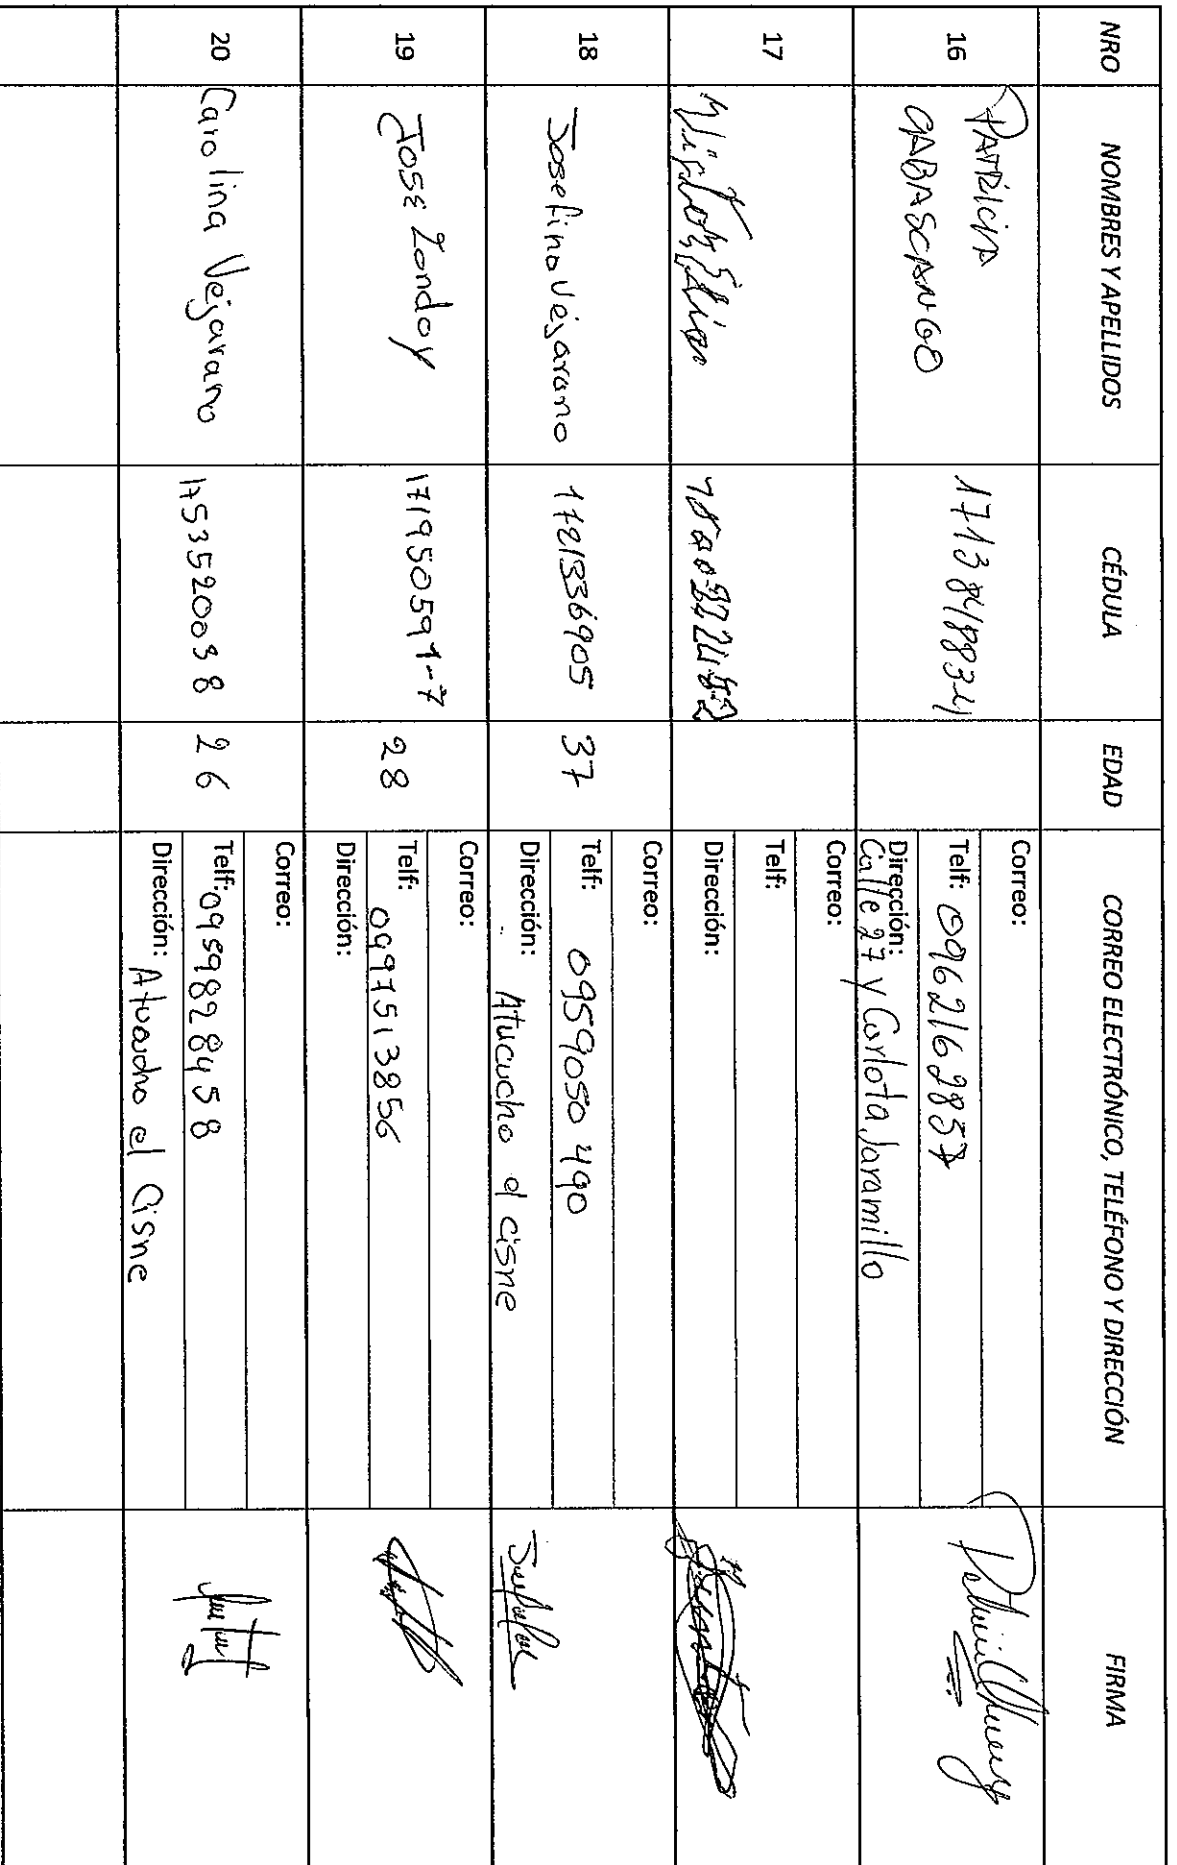 NRO NOMBRES Y APELLIDOS CÉDULA EDAD CORREO ELECTRÓNICO, TELÉFONO Y DIRECCIÓN FIRMA
16 PATRICIA GABASCANGO 1713848834
Correo:
Telf: 0962162837
Dirección: Calle 27 y Carlota Jaramillo
17
Correo:
Telf:
Dirección:
18 Josefina Vejarano 1721336905 37
Correo:
Telf: 0959050490
Dirección: Atucucho el cisne
19 José 171950591-7 28
Correo:
Telf: 0997513856
Dirección:
20 Carolina Vejarano 1753520098 26
Correo:
Telf: 0959828458
Dirección: el Cisne